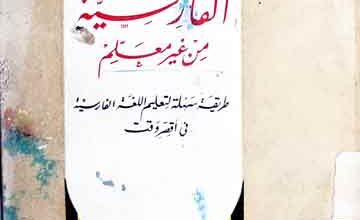 الفارسية
من غير معلم
طريقة سهلة لتعليم اللغة الفارسية
في أقصر وقت